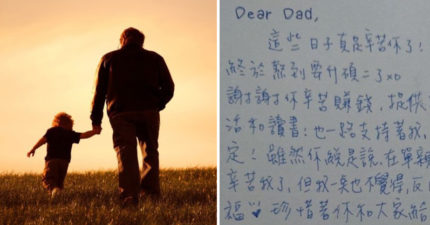 Dear Dad,
這些日子真是辛苦你了!
終於熬到要升碩二了xD
謝謝你辛苦賺錢,提供
活和讀書;也一路支持著我,
定!雖然你總是說,在單親
辛苦我了,但我一點也不覺得,反
福♡珍惜著你和大家給